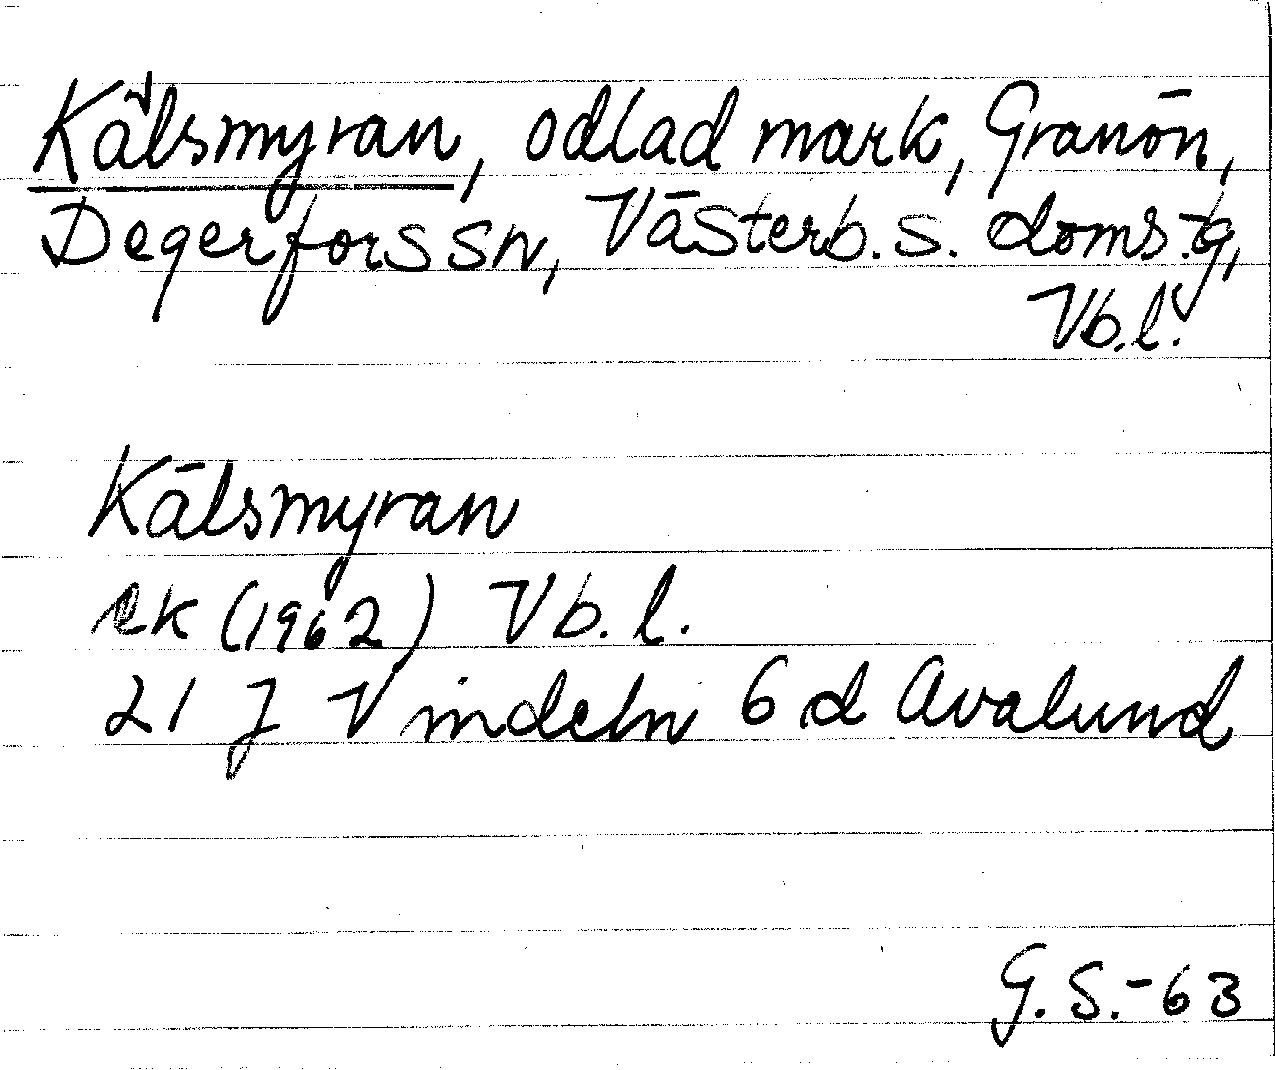 Kälsmyran, odlad mark, Granön,
Degerfors sn, Västerb. s. doms.g,
Vb.l.
Kälsmyran
ek (1962) Vb. l.
21 J Vindeln 6 d Avalund
G. S. -63